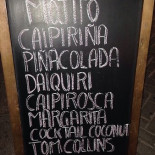 MOJITO
CAIPIRIÑA
PIÑACOLADA
DAIQUIRI
CAIPIROSCA
MARGARITA
COCKTAIL COCONUT
TOM COLLINS